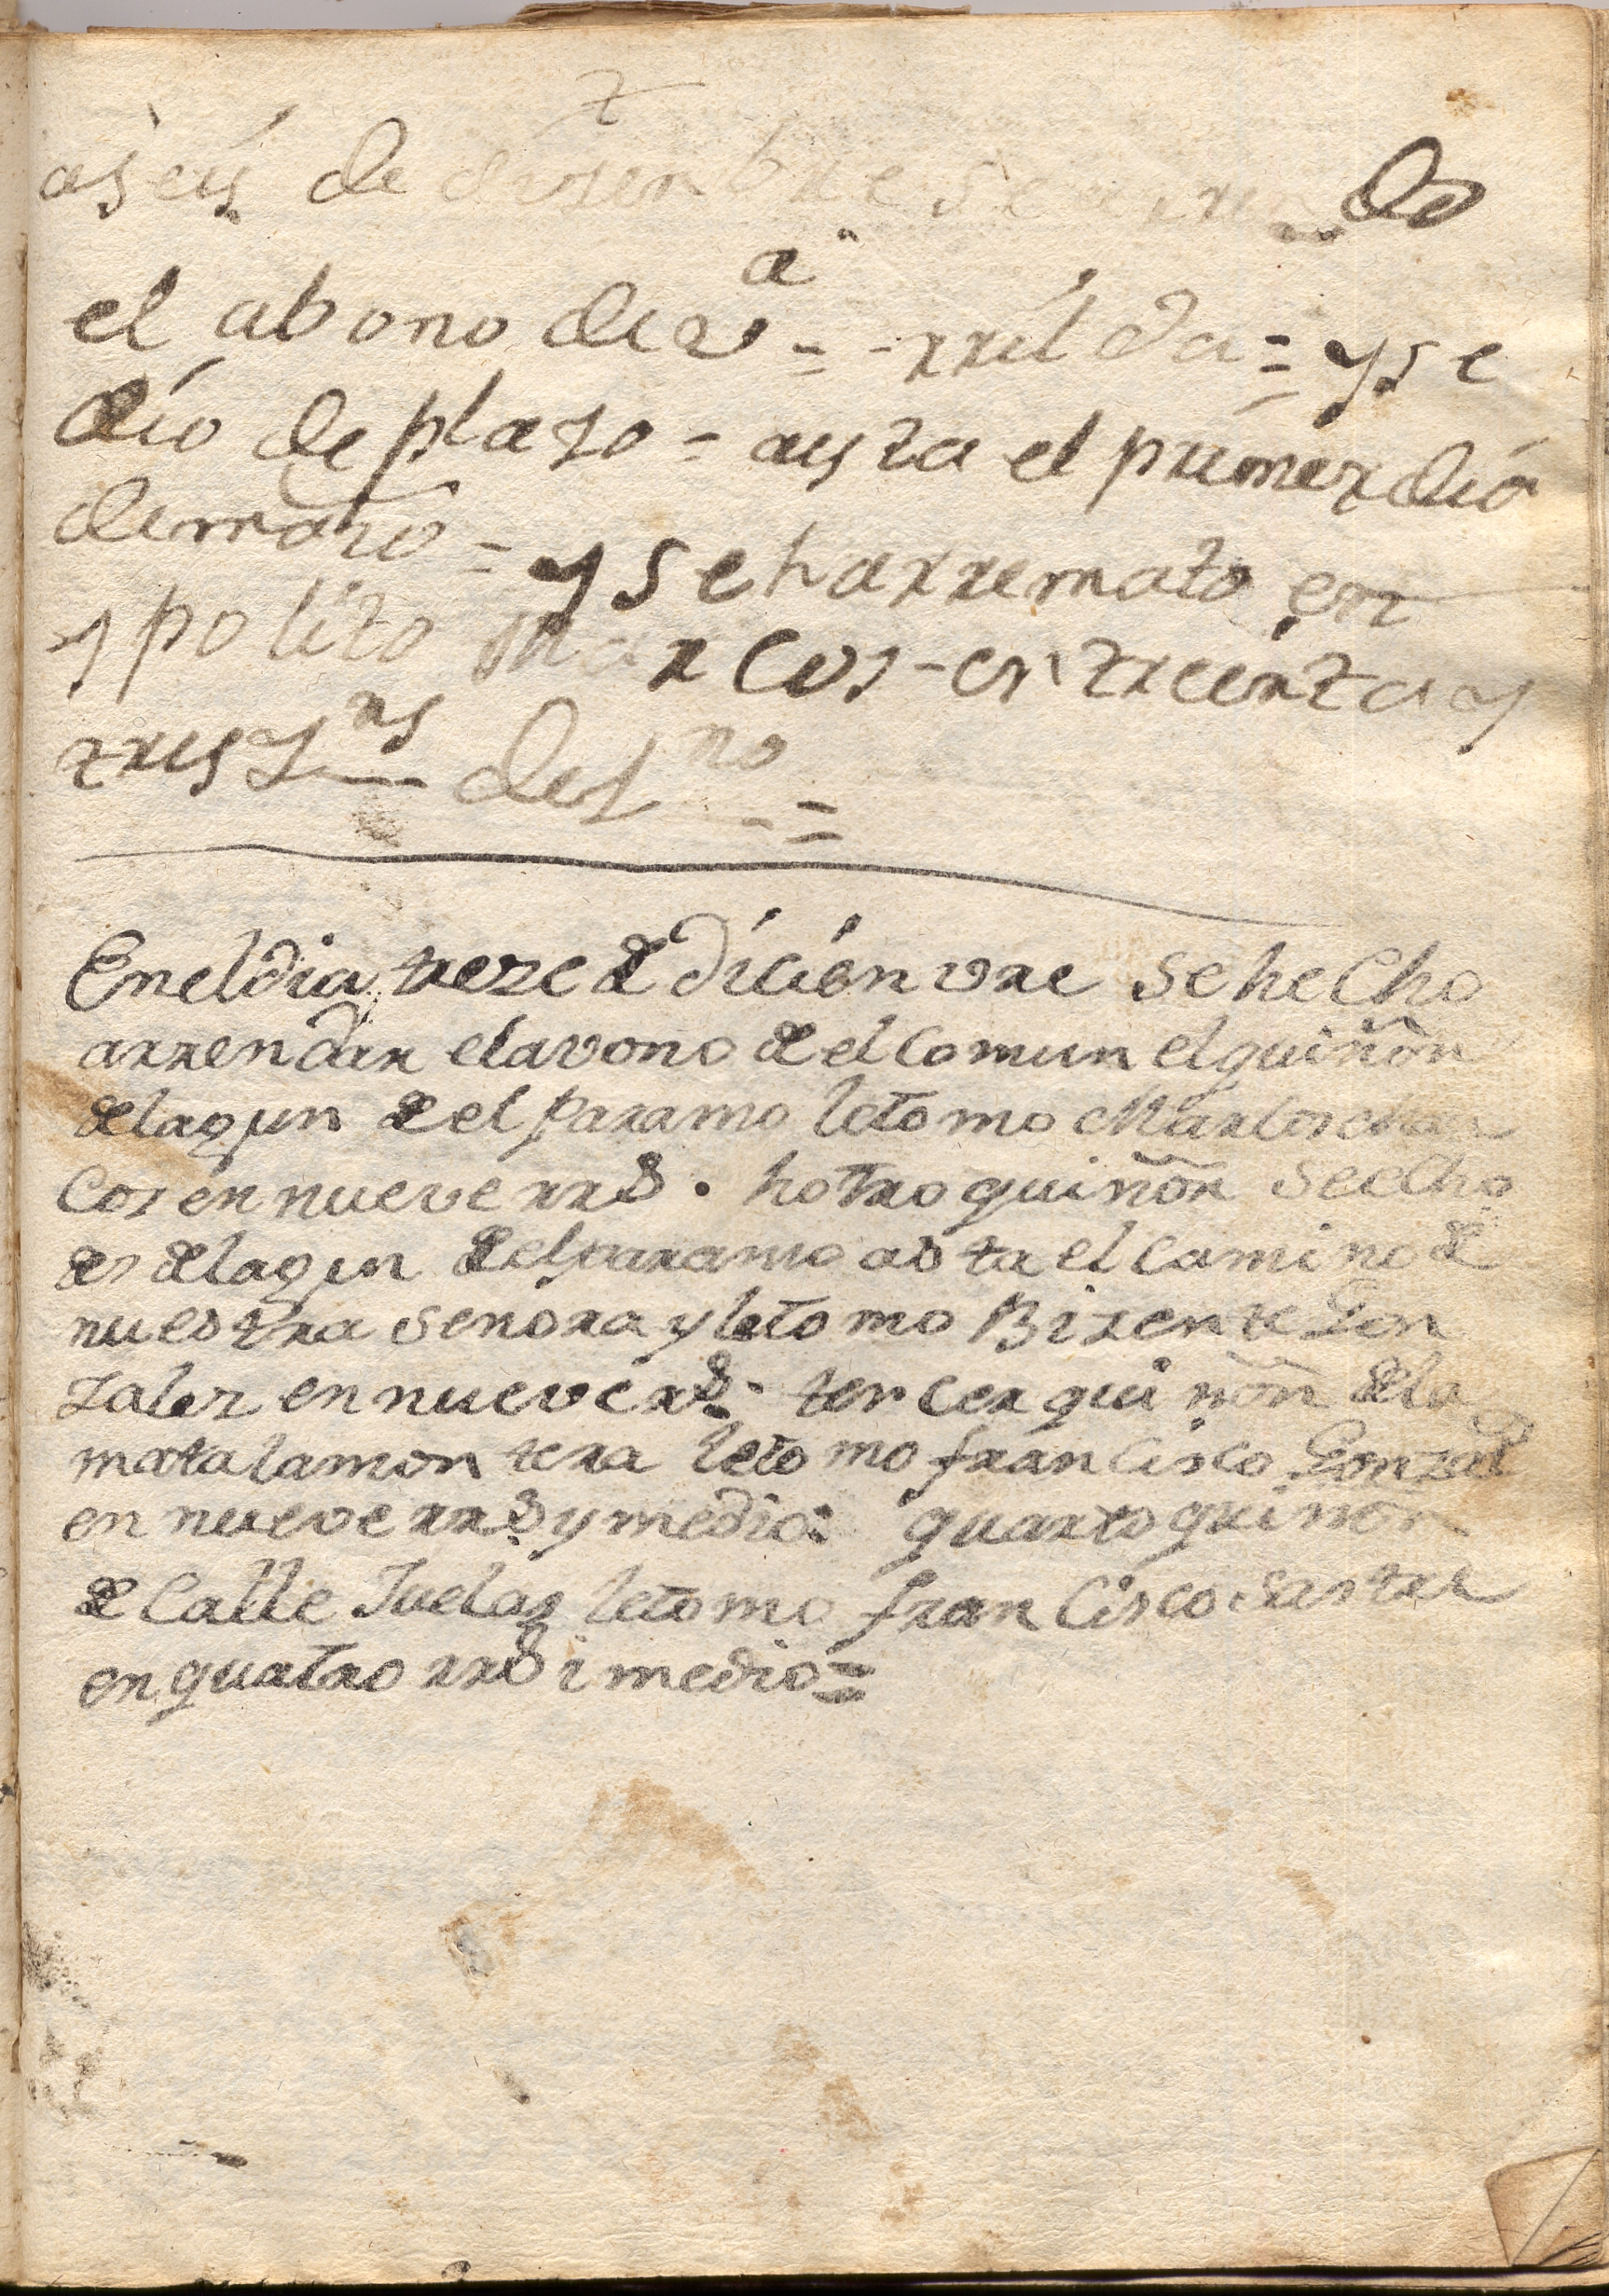 as eis de disenbre se arren do
el abono de
a
rreilda = y se
dio de plazo = asta el primer dia
de marzo = y seh arremato en
ypolito Marcos - en treinta y
tres
En el dia treze de dicienvre se hecho
arrendar el avono de el comun el quiñon
de lagun de el paramo le tomo Marcos
Cos en nueve rrs . hotro quiñon se echo
des de lagun del paramo asta el camino de
nuestra senora y le tomo Bizente Gon
zalez en nueve rs. tercer quiñon de la
mata la montera le tomo francisco Gonzal
en nueve rrs y medio: quarto quinon
de Calle Juelas le tomo francisco Sastre
en quatro rrs i medio =